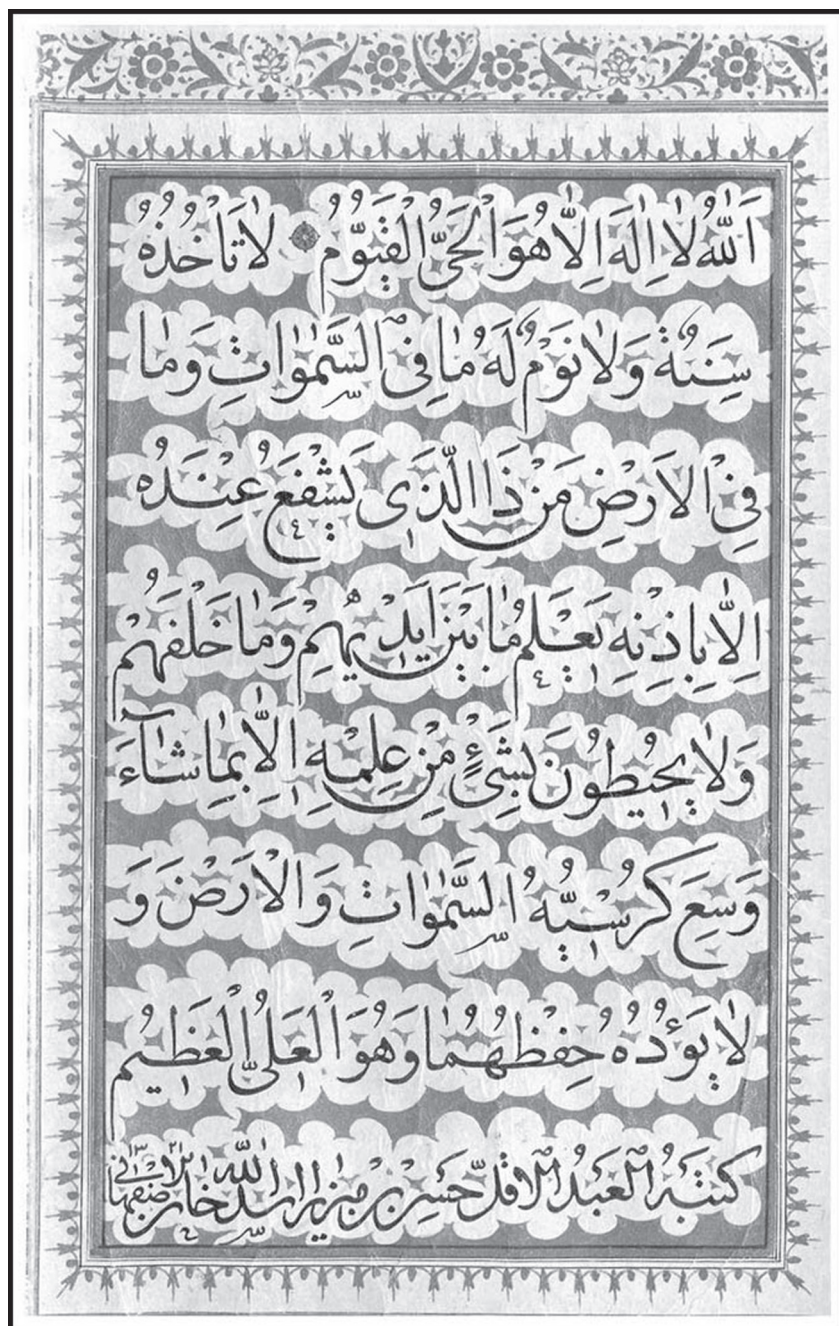 اَللهُ لاٰ اِلٰهَ اِلاّٰ هُوَ الْحَىُّ الْقَيُّومُ لاٰ تَأْخُذُهُ
سِنَةٌ وَلاٰ نَوْمٌ لَهُ مٰا فِى السَّمٰوٰاتِ وَمٰا
فِى الْاَرْضِ مَنْ ذَا الَّذى يَشْفَعُ عِنْدَهُ
اِلاّٰ بِاِذْنِهِ يَعْلَمُ مٰا بَيْنَ اَيْديهِمْ وَمٰا خَلْفَهُمْ
وَلاٰ يُحيطُونَ بِشَىْءٍ مِنْ عِلْمِهِ اِلاّٰ بِمٰا شٰآءَ
وَسِعَ كُرْسِيُّهُ السَّمٰوٰاتِ وَالْاَرْضَ وَ
لاٰ يَؤُدُهُ حِفْظُهُمٰا وَهُوَ الْعَلِىُّ الْعَظيمُ
كَتَبَهُ الْعَبْدُ الْاَقَلّ حَسَن بن ميرزا اسد الله خان اصفهانى